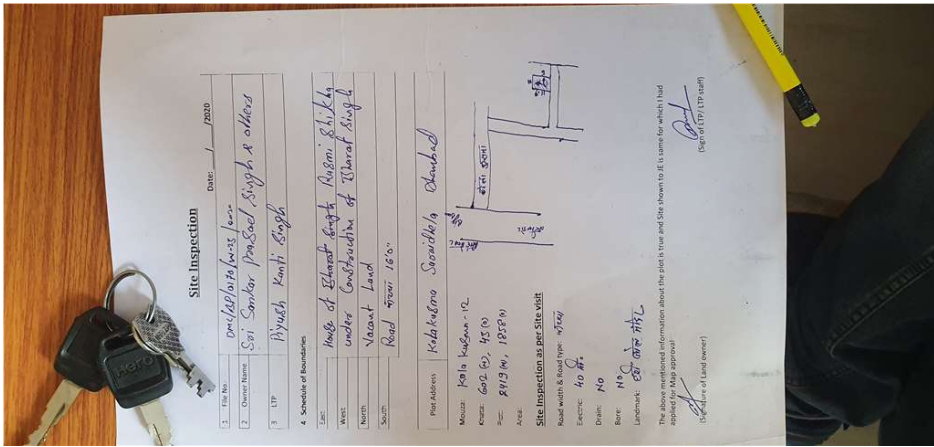 Site Inspection
Date: / /2020
1 File No. DMC/BP/0170/W-25/2020
2 Owner Name Sri Sankar Prasad Singh & others
3 LTP Piyush Kanti Singh
4 Schedule of Boundaries
East House of Bharat Singh Rasmi Shikha
West under Construction of Bharat Singh
North Vacant Land
South Road 16'0"
Plot Address Kolakusma Saraidhela Dhanbad
Mouza: Kola Kusma-12
Khata: 602 (N), 45 (O)
2919 (N), 1858 (O)
Area:
Site Inspection as per Site visit
Road width & Road type:
Electric: 40
Drain: No
Bore: No
Landmark:
The above mentioned information about the plot is true and Site shown to JE is same for which I had
applied for Map approval
(Signature of Land owner)
(Sign of LTP/ LTP staff)
Hero